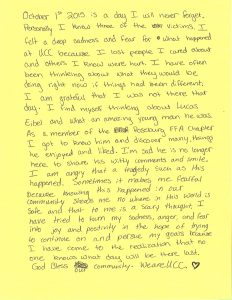 October 1st 2015 is a day I will never forget.
Personally I knew three of the victims. I
felt a deep sadness and fear for what happened
at UCC because I lost people I cared about
and others I knew were hurt. I have often
been thinking about what they would be
doing right now if things had been different.
I am grateful that I was not there that
day. I find myself thinking about Lucas
Eibel and what an amazing young man he was.
As a member of the Roseburg FFA Chapter
I got to know him and discover many things
he enjoyed and liked. I'm sad he is no longer
here to share his witty comments and smile.
I am angry that a tragedy such as this
happened. Sometimes it makes me fearful
because knowing this happened in our
community shows me no where in this world is
safe and that to me is a scary thought. I
have tried to turn my sadness, anger, and fear
into joy and positivity in the hope of trying
to continue on and pursue my goals because
I have come to the realization that no
one knows what day will be there last.
God Bless our community. #WeareUCC. ♡